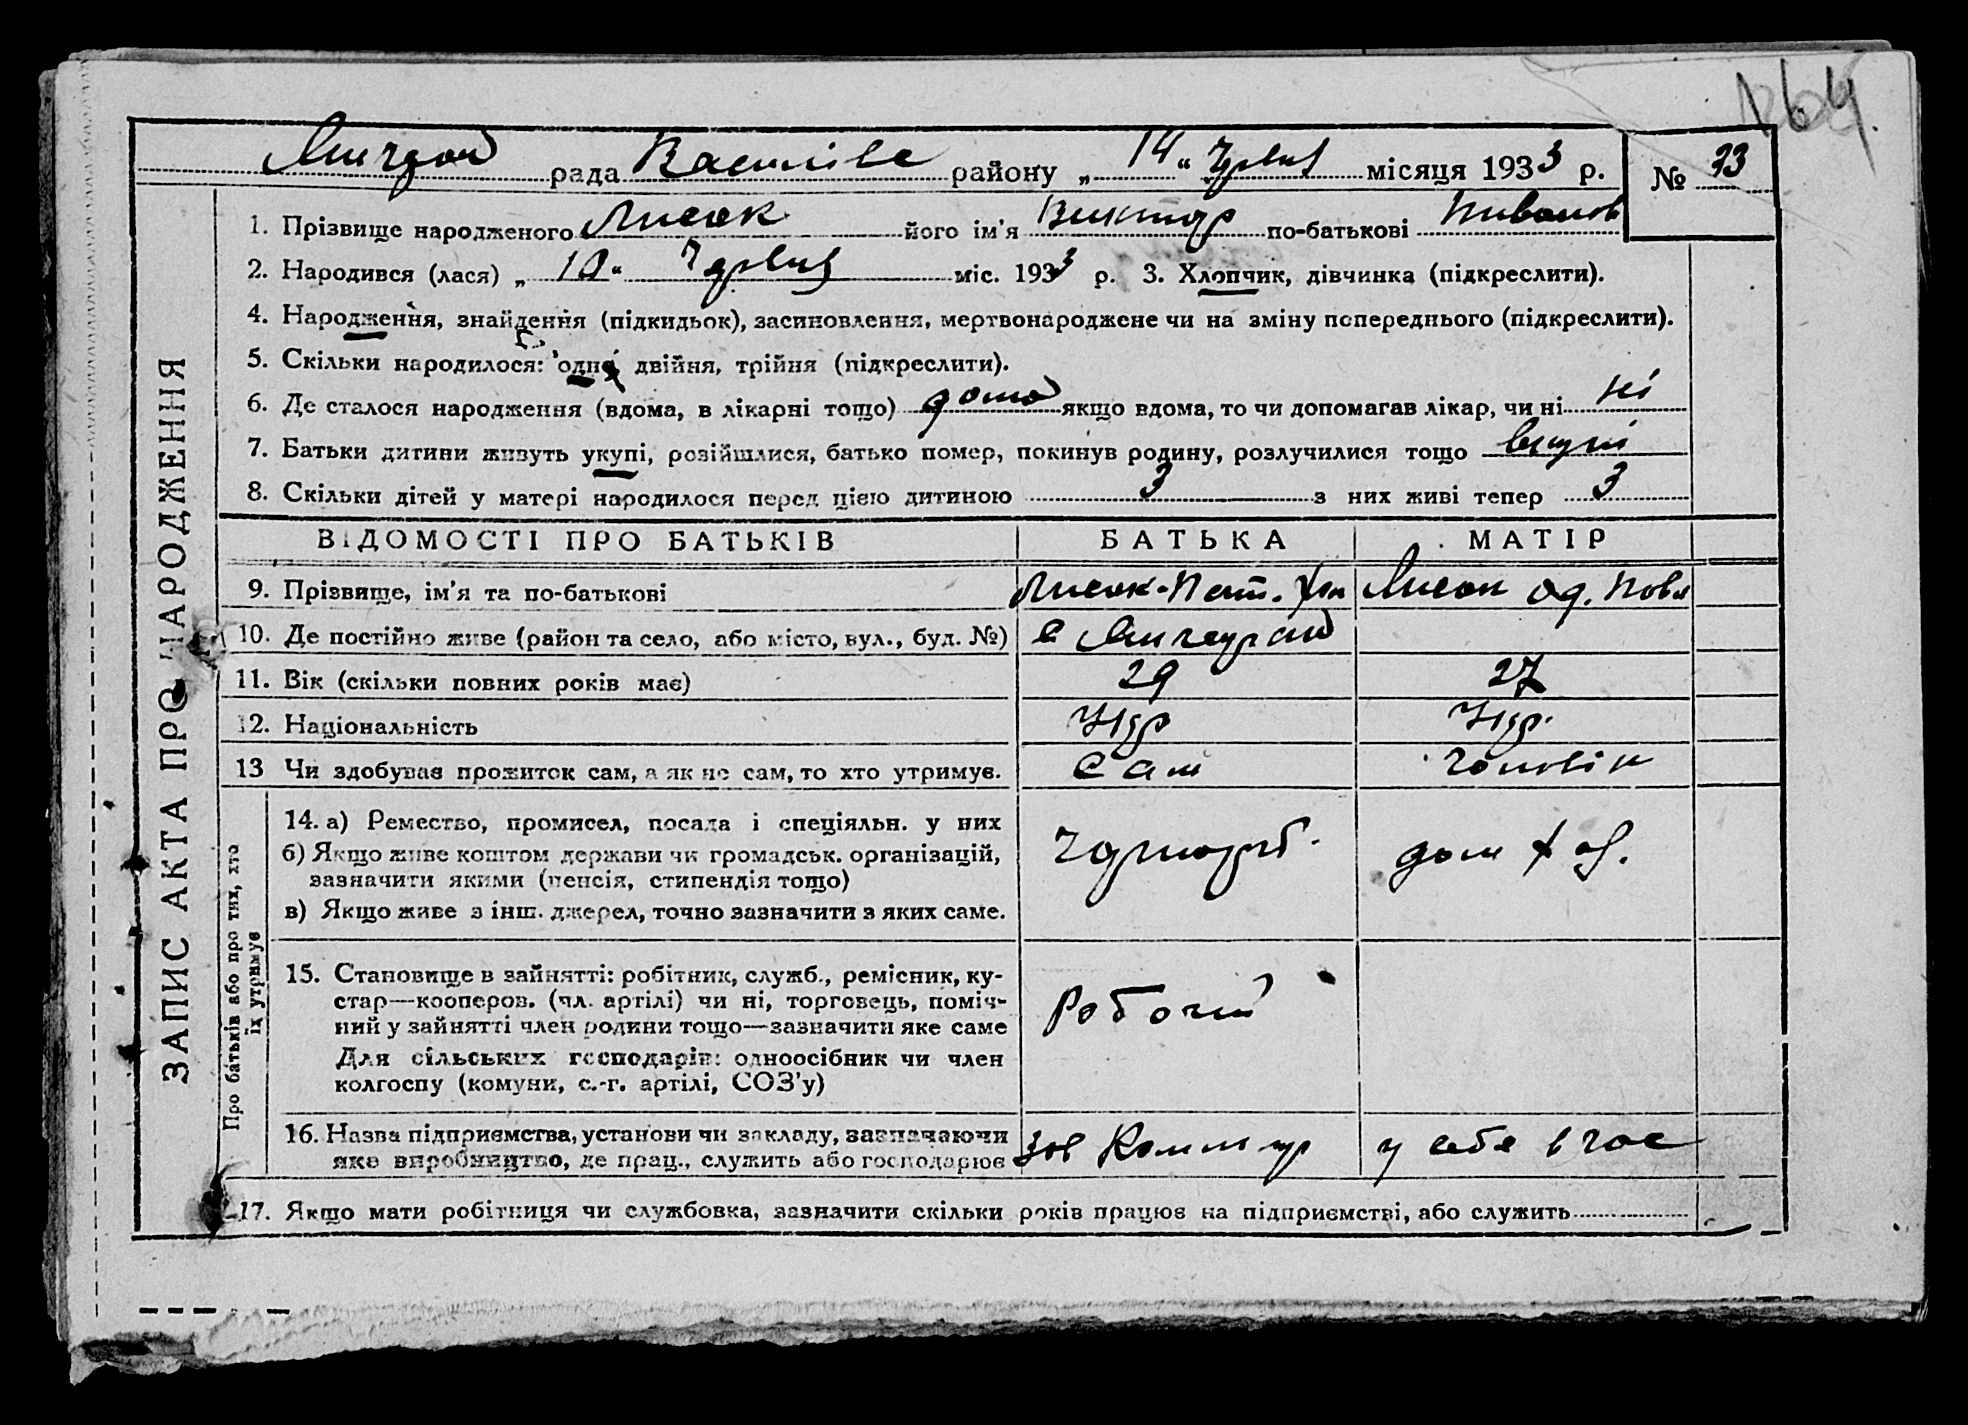 1264.
рада Василівс району „ 14 “ Червня місяця 1933 р. № 33
1. Прізвище народженого Лисак його ім’я Виктор по-батькові
2. Народився (лася) „ 10 “ Червня міс. 1933 р. 3. Хлопчик, дівчинка (підкреслити).
4. Народження, знайдення (підкидьок), засиновлення, мертвонароджене чи на зміну попереднього (підкреслити).
5. Скільки народилося: одно, двійня, трійня (підкреслити).
6. Де сталося народження (вдома, в лікарні тощо) дома якщо вдома, то чи допомагав лікар, чи ні ні
7. Батьки дитини живуть укупі, розійшлися, батько помер, покинув родину, розлучилися тощо вкупі
8. Скільки дітей у матері народилося перед цією дитиною 3 з них живі тепер 3
ВІДОМОСТІ ПРО БАТЬКІВ БАТЬКА МАТІР
9. Прізвище, ім’я та по-батькові Лисак Лисак
10. Де постійно живе (район та село, або місто, вул., буд. №) с
11. Вік (скільки повних років має) 29 27
12. Національність Укр Укр.
13 Чи здобував прожиток сам, а як не сам, то хто утримує. Сам Чоловік
14. а) Ремество, промисел, посада і спеціяльн. у них Чорнороб. дом хоз.
б) Якщо живе коштом держави чи громадськ. організацій,
зазначити якими (пенсія, стипендія тощо)
в) Якщо живе з інш. джерел, точно зазначити з яких саме.
15. Становище в зайнятті: робітник, служб., ремісник, ку-
стар—кооперов. (чл. артілі) чи ні, торговець, поміч-
ний у зайнятті член родини тощо—зазначити яке саме Робочий
Для сільських господарів: одноосібник чи член
колгоспу (комуни, с.-г. артілі, СОЗ’у)
16. Назва підприємства, установи чи закладу, зазначаючи
яке виробництво, де прац., служить або господарює зав Коммунар у себе в
17. Якщо мати робітниця чи службовка, зазначити скільки років працює на підприємстві, або служить
ЗАПИС АКТА ПРО НАРОДЖЕННЯ
Про батьків або про тих, хто
їх утримує